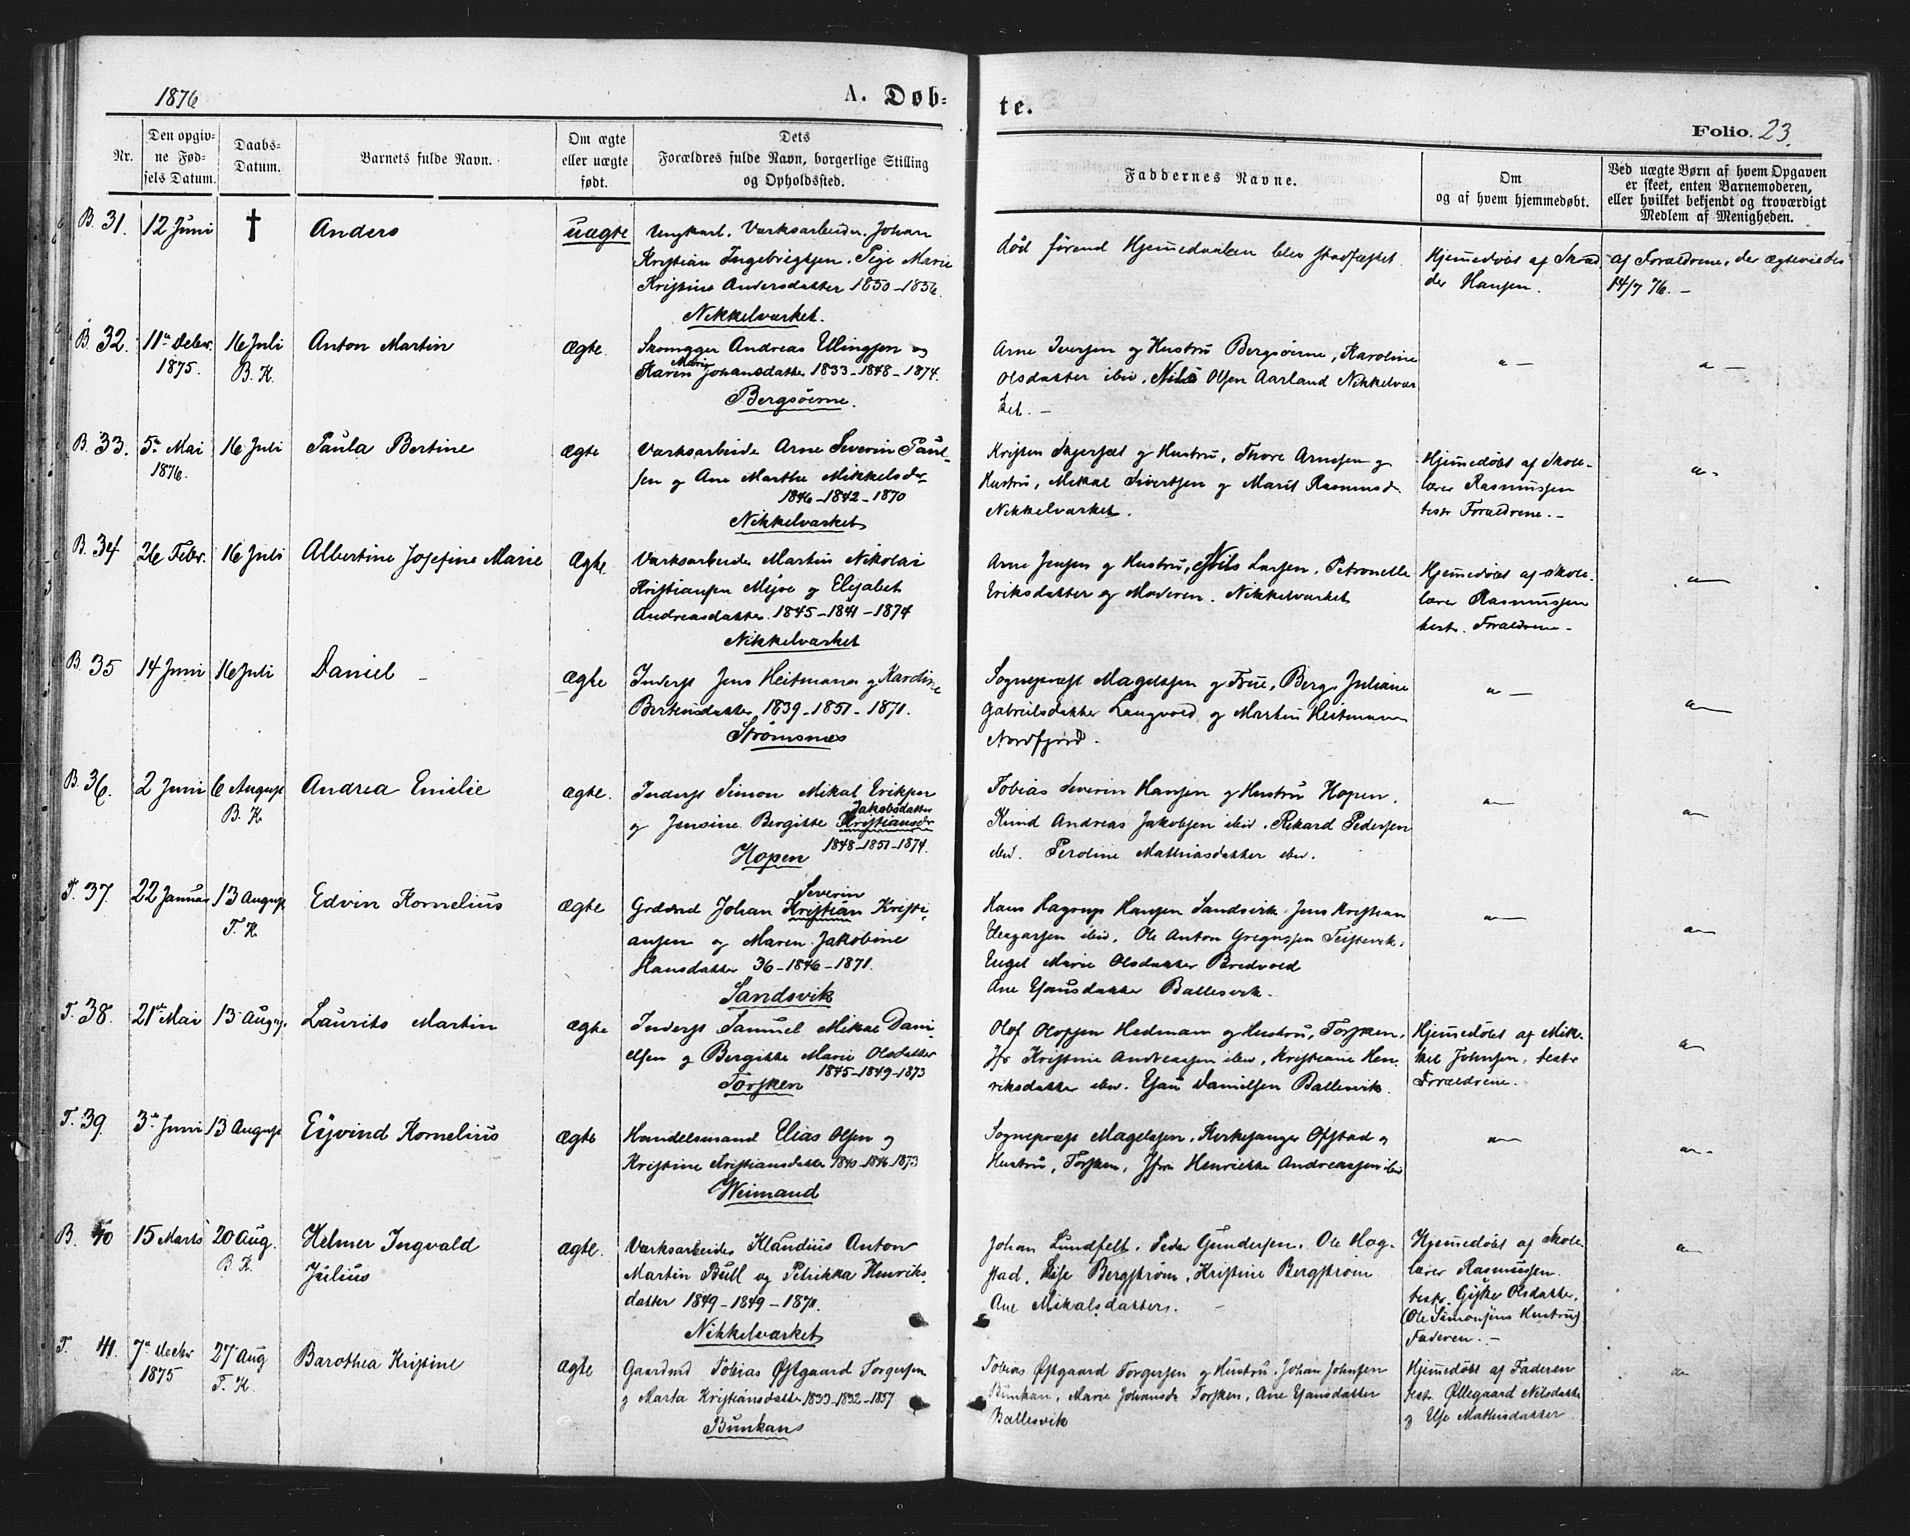 1876
A. Døb-
te.
Folio. 23.
Nr.
Den opgiv-
ne Fød-
sels Datum.
Daabs-
Datum.
Barnets fulde Navn.
Om ægte
eller uægte
født.
Dets
Forældres fulde Navn, borgerlige Stilling
og Opholdssted.
Faddernes Navne.
Om
og af hvem hjemmedøbt.
Ved uægte Børn af hvem Opgaven
er skeet, enten Barnemoderen,
eller hvilket bekjendt og troværdigt
Medlem af Menigheden.
B. 31. 12 Juni † Anders uægte
Ungkarl. Værksarbeider Johan
Kristian Ingebrigtsen. Pige Marie
Kristine Andersdatter 1850-1856.
Nikkelværket.
død førend Hjemmedaaben blev stadfæstet
Hjemmedøbt af
Hansen.
af Forældrene, der ægteviedes
14/7 76. -
B 32. 11te Debr. 1875. 16 Juli B. K. Anton Martin ægte.
Andreas Ellingsen og
Karen Marie Johansdatter 1833-1848-1874.
Bergsøerne.
Arne Iversen og Hustru Bergsøerne, Karoline
Olsdatter ibid, Nils Olsen Aarland Nikkelvær
ket. -
B. 33. 5te Mai 1876. 16 Juli Paula Bertine ægte
Værksarbeide Arne Severin Paul-
sen og Ane Marthe Mikkelsdr
1846-1842-1870
Nikkelværket
Kristen Skjersæt og Hustru, Thore Arnesen og
Hustru, Mikal Sivertsen og Marit Rasmusd.
Nikkelværket.
Hjemmedøbt af Skole-
lærer Rasmussen
testr Forældrene. -
B. 34 26 Febr. 16 Juli Albertine Josefine Marie ægte.
Værksarbeide Martin Nikolai
Kristiansen Mejve og Elisabet
Andreasdatter. 1845-1841-1874
Nikkelværket
Arne Jensen og Hustru, Nils Larsen, Petronelle
Eriksdatter og Moderen. Nikkelværket
Hjemmedøbt af Skole-
lærer Rasmussen
testr. Forældrene -
B. 35 14 Juni 16 Juli Daniel - ægte
Inderst Jens Heitmann og Karoline
Berteusdatter 1839-1851-1871.
Strømsnes
Sognepræst Magelssen og Frue, Berg, Juliane
Gabrielsdatter Langvold og Martin Heitmann
Nordfjord.
B. 36. 2 Juni 6 August B. K. Andrea Emilie ægte.
Inderst Simon Mikal Eriksen
og Jensine Bergitte Kristiansdr Jakobsdatter
1848-1851-1874.
Hopen
Tobias Severin Hansen og Hustru Hopen.
Knud Andreas Jakobsen ibid, Rikard Pedersen
ibid. Peroline Mathiasdatter ibid.
T. 37. 22 Januar 13 August T. K. Edvin Kornelius ægte
Grdmd Johan Kristian Severin Kristi-
ansen og Maren Jakobine
Hansdatter 36-1846-1871.
Sandsvik
Hans Hagrup Hansen Sandsvik. Jens Kristian
ibid. Ole Anton Gregussen Teistevik.
Engel Marie Olsdatter Bredvold
Ane Hansdatter Ballesvik.
T. 38. 21de Mai 13 August. Laurits Martin ægte
Inderst Samuel Mikal Dani
elsen og Bergitte Marie Olsdatter
1845-1849-1873
Torsken
Olof Olofsen Hedman og Hustru, Torsken,
Jfr Kristine Andreassen ibid, Kristiane Hen-
riksdatter ibid. Hans Danielsen Ballesvik.
Hjemmedøbt af Mik-
kel Johnsen, testr
Forældrene.
T. 39. 3de Juni 13 August Eyvind Kornelius ægte
Handelsmand Elias Olsen og
Kristine Kristiansdatter 1840-1846-1873
Weimand
Sognepræst Magelssen, Kirkesanger Ofstad og
Hustru, Torsken, Jfr Henriette Andreassen ibid
B. 40 15 Marts 20 Aug. B. K. Helmer Ingvald
Julius
ægte.
Værksarbeides Klaudius Anton
Martin Bull og Petrikka Henriks-
datter 1849-1849-1870.
Nikkelværket
Johan Lundfelt. Peder Gundersen. Ole Hog-
stad, Lise Bergstrøm, Kristine Bergstrøm
Ane Mikalsdatter.
Hjemmedøbt af Skole-
lærer Rasmussen.
testr. Gjske Olsdatter,
(Ole Simonsens Hustru)
Faderen. -
T. 41. 7de Decbr 1875 27 Aug T. K. Barothea Kristine ægte
Gaardmd Tobias Østgaard Torgersen
og Marta Kristiansdatter 1833-1832-1857
Bunkan
Tobias Østgaard Torgersen og Hustru, Johan Johnsen
Bunkan, Marie Johansd. Torsken, Ane Hansdatter
Ballesvik
Hjemmedøbt af Faderen
testr Øllegaard Nilsdatte
og Else Mathisdatter